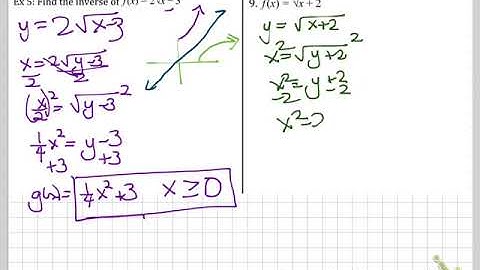 Ex 5: Find the inverse of f(x) = 2√x − 3
y = 2√x-3
x = 2√y-3
2 2
(x/2)² = √y-3²
1/4x² = y-3
+3 +3
g(x) = 1/4x²+3 x ≥ 0
9. f(x) = √x + 2
y = √x+2
x² = √y+2²
x² = y+2
-2 -2
x²-2